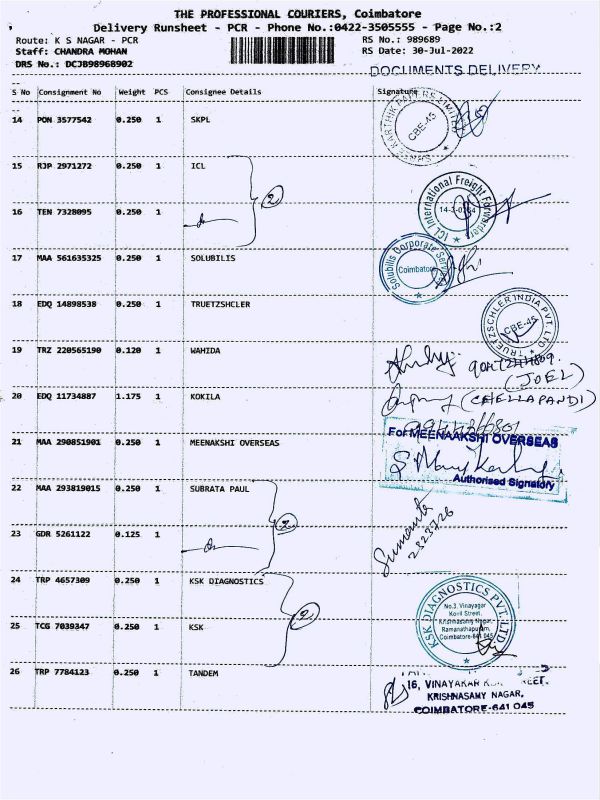 THE PROFESSIONAL COURIERS, Coimbatore
Delivery Runsheet - PCR - Phone No.:0422-3505555 - Page No.:2
Route: K S NAGAR - PCR
RS No.: 989689
Staff: CHANDRA MOHAN
RS Date: 30-Jul-2022
DRS No.: DCJB98968902
DOCUMENTS DELIVERY
S No Consignment No Weight PCS Consignee Details Signature
14 PON 3577542 0.250 1 SKPL
CBE-45
15 RJP 2971272 0.250 1 ICL
2
ICL International Freight Forwarder
16 TEN 7328095 0.250 1
17 MAA 561635325 0.250 1 SOLUBILIS
Solubilis Corporate Services
Coimbatore
18 EDQ 14898538 0.250 1 TRUETZSHCLER
TRUETZSCHLER INDIA PVT. LTD
CBE-45
19 TRZ 220565190 0.120 1 WAHIDA
(JOEL)
20 EDQ 11734887 1.175 1 KOKILA
(CHELLAPANDI)
21 MAA 290851901 0.250 1 MEENAKSHI OVERSEAS
For MEENAAKSHI OVERSEAS
Authorised Signatory
22 MAA 293819015 0.250 1 SUBRATA PAUL
2
23 GDR 5261122 0.125 1
24 TRP 4657309 0.250 1 KSK DIAGNOSTICS
2
KSK DIAGNOSTICS PVT. LTD
No.3, Vinayagar
Kovil Street,
Krishnasamy Nagar,
Ramanathapuram,
Coimbatore-641 045
25 TCG 7039347 0.250 1 KSK
26 TRP 7784123 0.250 1 TANDEM
16, VINAYAKAR
KRISHNASAMY NAGAR,
COIMBATORE-641 045